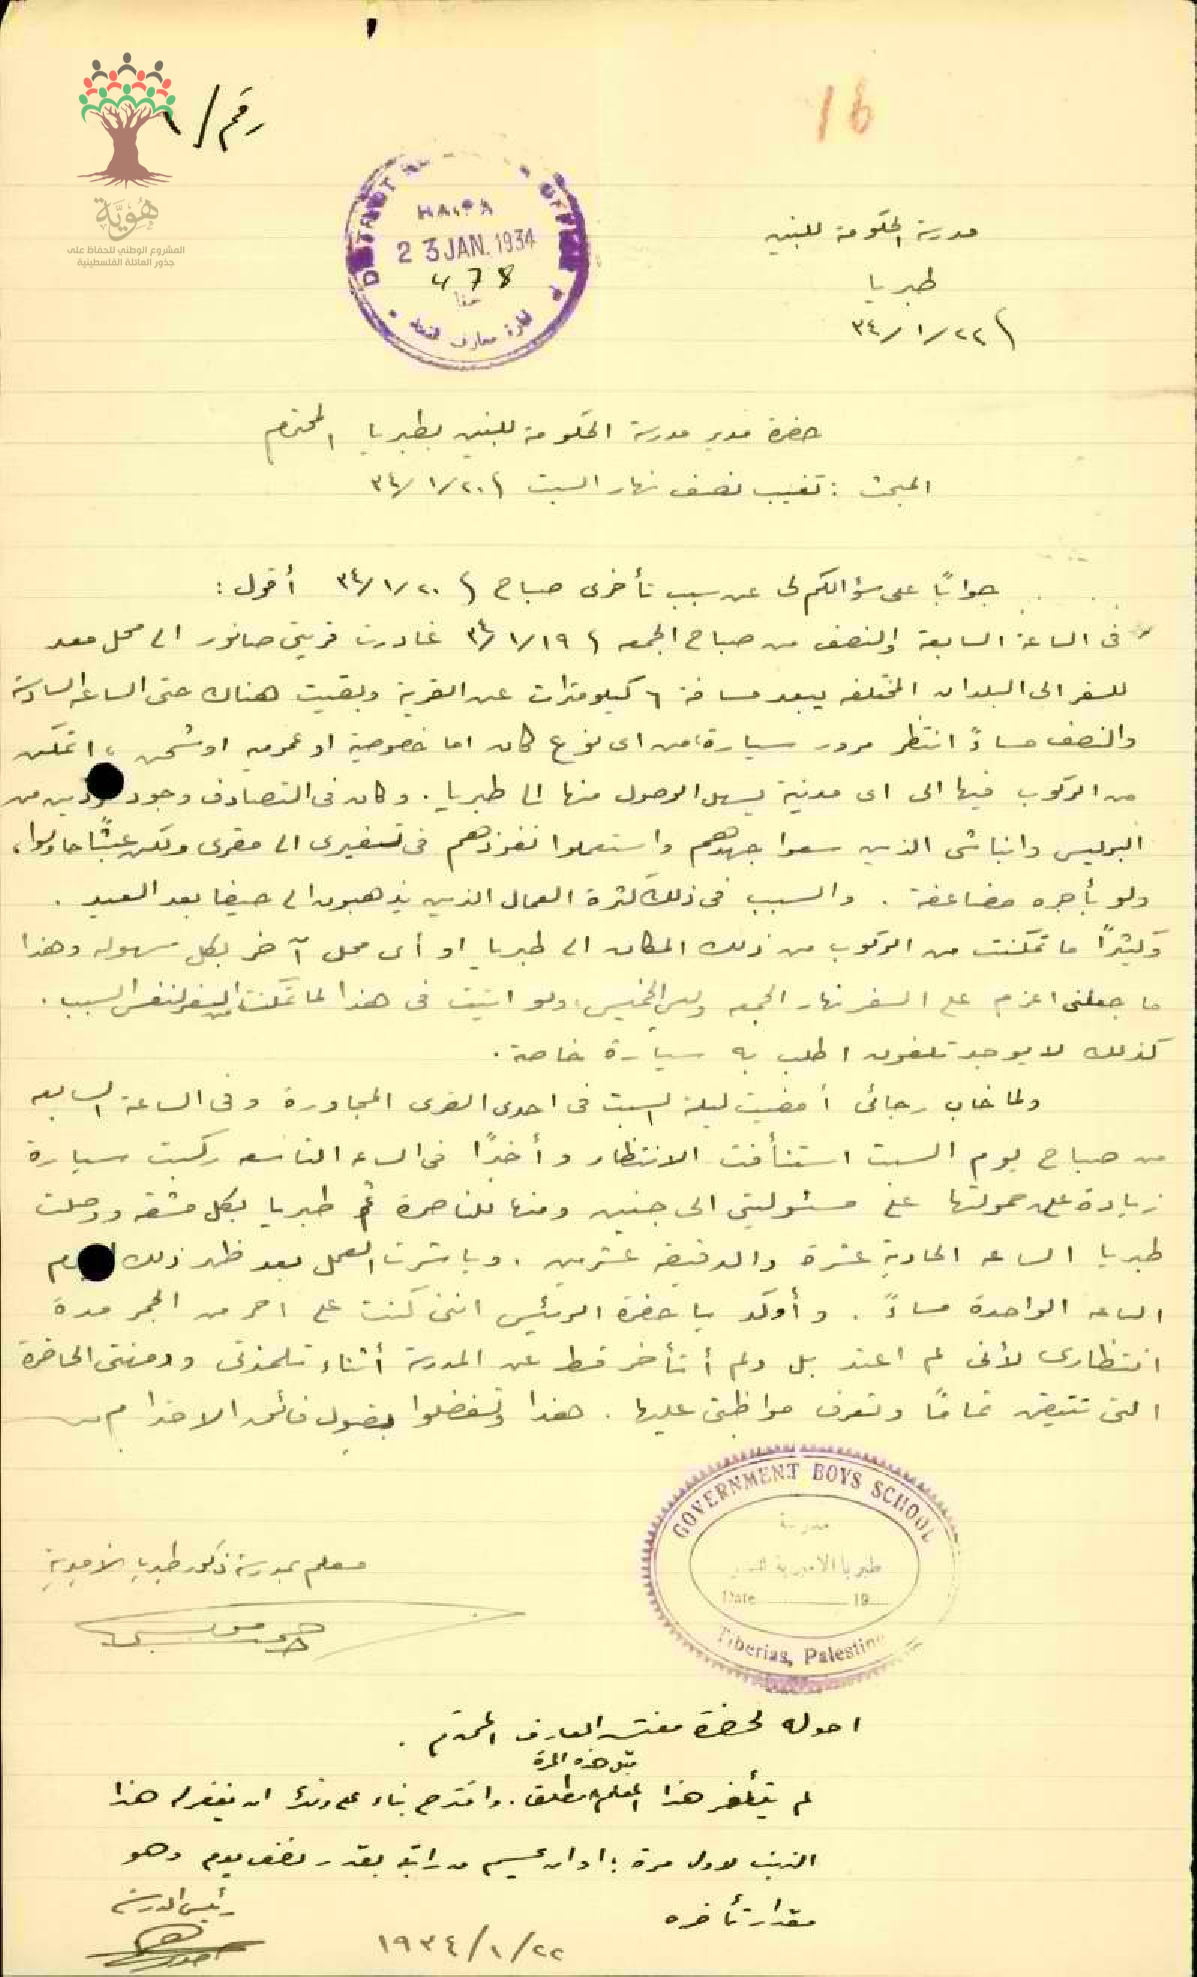 رقم / ١
16
هُوِيَّة
المشروع الوطني للحفاظ على
جذور العائلة الفلسطينية
DISTRICT OFFICE
HAIFA
23 JAN. 1934
478
حيفا
مدرسة الحكومة للبنين
طبريا
٢٢/١/٣٤
حضرة مدير مدرسة الحكومة للبنين بطبريا المحترم
المبحث : تغيب نصف نهار السبت ٢٠/١/٣٤
جوابًا على سؤالكم لي عن سبب تأخري صباح ٢٠/١/٣٤ أقول :
في الساعة السابعة والنصف من صباح الجمعه ١٩/١/٣٤ غادرت قريتي صانور الى محل معد
للسفر الى البلدان المختلفه يبعد مسافة ٦ كيلومترات عن القرية وبقيت هناك حتى الساعه السادسة
والنصف مساءً انتظر مرور سيارة، من اى نوع كان اما خصوصية او عموميه او شحن، اتمكن
من الركوب فيها الى اى مدينة يسهل الوصول منها الى طبريا. وكان في التصادف وجود من
البوليس وانباشي الذين سعوا جهدهم واستعملوا نفوذهم في تسفيري الى مقري ولكن عبثًا حاولوا،
ولو بأجره مضاعفة . والسبب في ذلك كثرة العمال الذين يذهبون الى حيفا بعد العيد .
وكثيرًا ما تمكنت من الركوب من ذلك المكان الى طبريا او أى محل آخر بكل سهوله وهذا
ما جعلني اعزم على السفر نهار الجمعه وليس الخميس، ولو اتيت في هذا لما تمكنت من السفر لنفس السبب.
كذلك لا يوجد تلفون اطلب به سيارة خاصة.
ولما خاب رجائي أمضيت ليلة السبت في احدى القرى المجاورة وفي الساعة السابعه
من صباح يوم السبت استأنفت الانتظار وأخيرًا في الساعه التاسعه ركبت سيارة
زيادة على حمولتها على مسئوليتي الى جنين ومنها للناصرة ثم طبريا بكل مشقه ووصلت
طبريا الساعه الحادية عشرة والدقيقه عشرين . وباشرت العمل بعد ظهر ذلك اليوم
الساعه الواحدة مساءً . وأؤكد يا حضرة الرئيس انني كنت على احر من الجمر مدة
انتظاري لأني لم اعتد بل ولم أتأخر قط عن المدرسة أثناء تلمذتي ومهنتي الحاضرة
التي تتيقن تمامًا وتعرف مواظبتي عليها . هذا وتفضلوا بقبول فائق الاحترام
GOVERNMENT BOYS SCHOOL
مدرسة
طبريا الاميرية
Date 19
Tiberias, Palestine
معلم بمدرسة ذكور طبريا الاميرية
احوله لحضرة مفتش المعارف المحترم .
قبل هذه المرة
لم يتأخر هذا المعلم مطلقا . واقترح بناء على ذلك ان يغفر له هذا
الذنب لاول مرة ; او ان يحسم من راتبه بقدر نصف يوم وهو
مقدار تأخره
رئيس المدرسة
٢٢/١/١٩٣٤